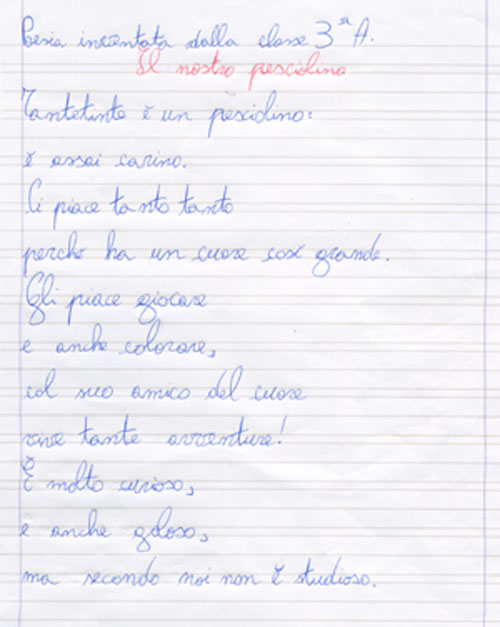 Poesia inventata dalla classe 3ª A.
Il nostro pesciolino
Tantetinte è un pesciolino:
è assai carino.
Ci piace tanto tanto
perché ha un cuore così grande.
Gli piace giocare
e anche colorare,
col suo amico del cuore
vive tante avventure!
È molto curioso,
e anche goloso,
ma secondo noi non è studioso.